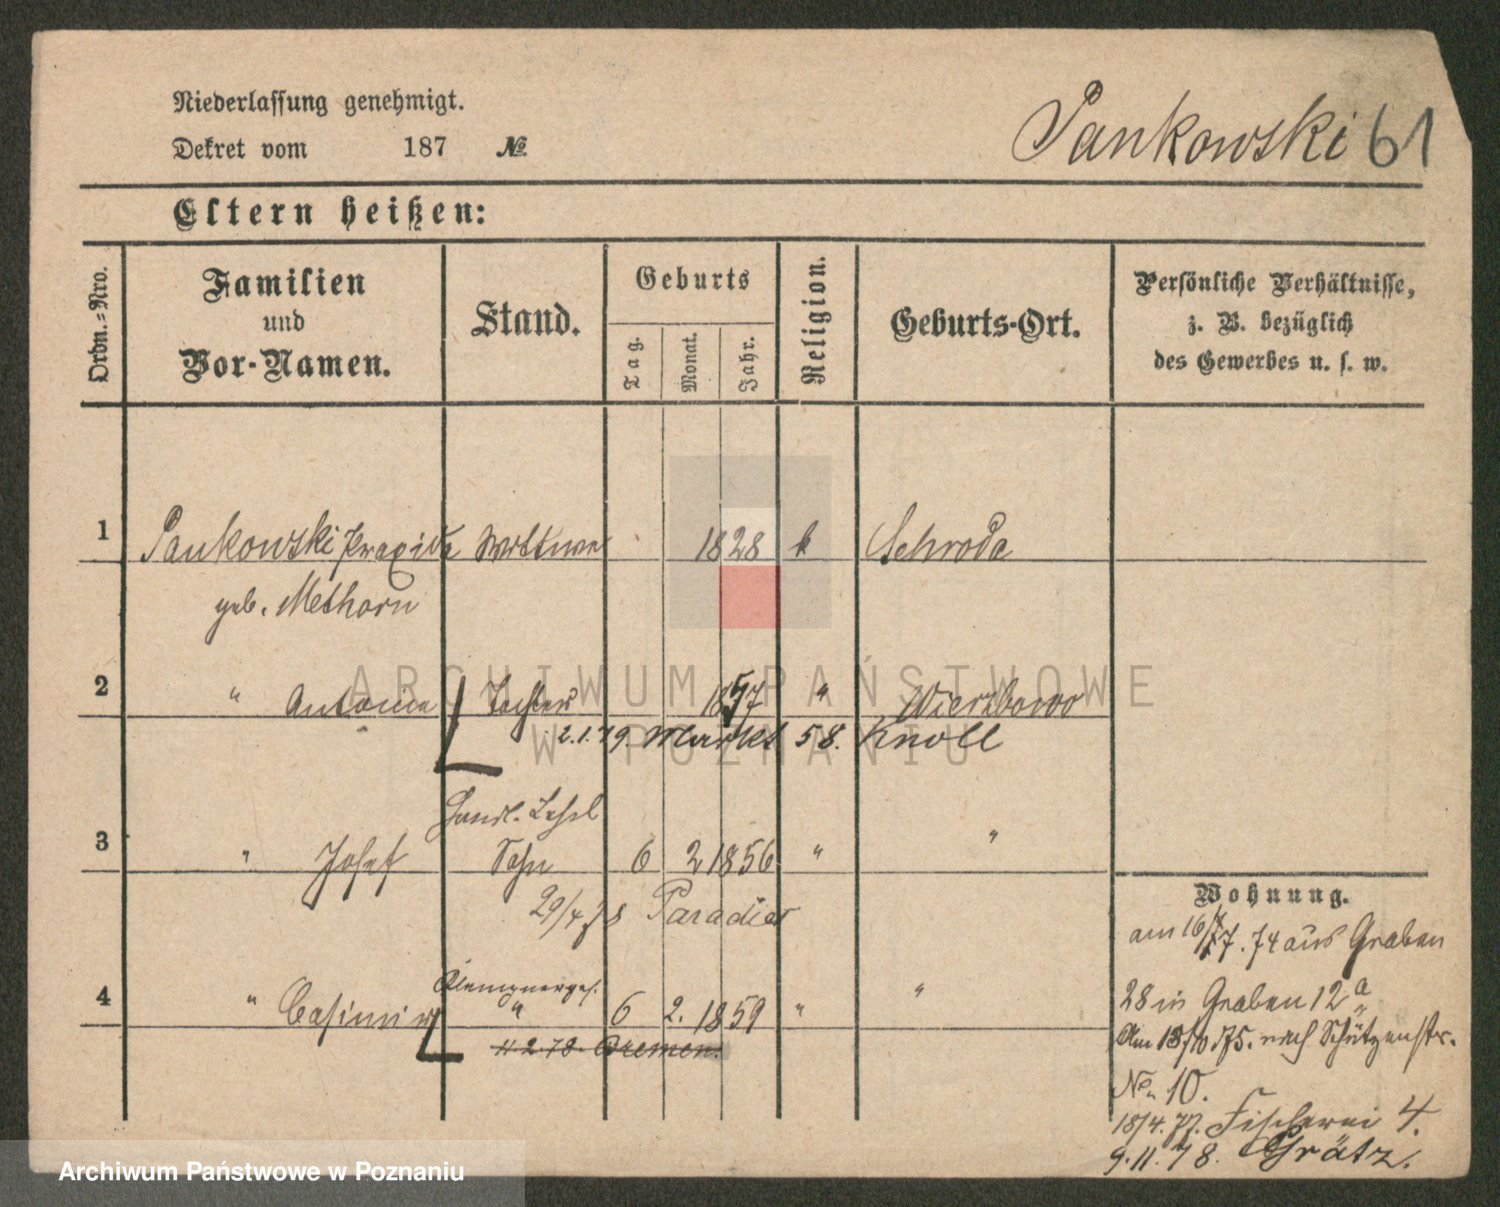 Niederlassung genehmigt.
Dekret vom 187 №
Pankowski 61
Eltern heißen:
Ordn.-Nro.
Familien
und
Vor-Namen.
Stand.
Geburts
Tag.
Monat.
Jahr.
Religion.
Geburts-Ort.
Persönliche Verhältnisse,
z. B. bezüglich
des Gewerbes u. s. w.
1 Pankowski Praxida Wittwe 1828 k Schroda
geb. Methorn
2 " Antonie Tochter 1857 " Wierzbowo
2.1.79. Markt 58. Knoll
Handl.
3 " Josef Sohn 6 2 1856 " "
29/4 78 Paradies
Klempnerges.
4 " Casimir " 6 2. 1859 " "
11.2.78. Bremen.
Wohnung.
am 16/7. 74 aus Graben
28 in Graben 12 a
Am 13/10 75. nach Schützenstr.
No. 10.
18/4. 77. Fischerei 4.
9.11.78. Grätz.
ARCHIWUM PAŃSTWOWE
W POZNANIU
Archiwum Państwowe w Poznaniu